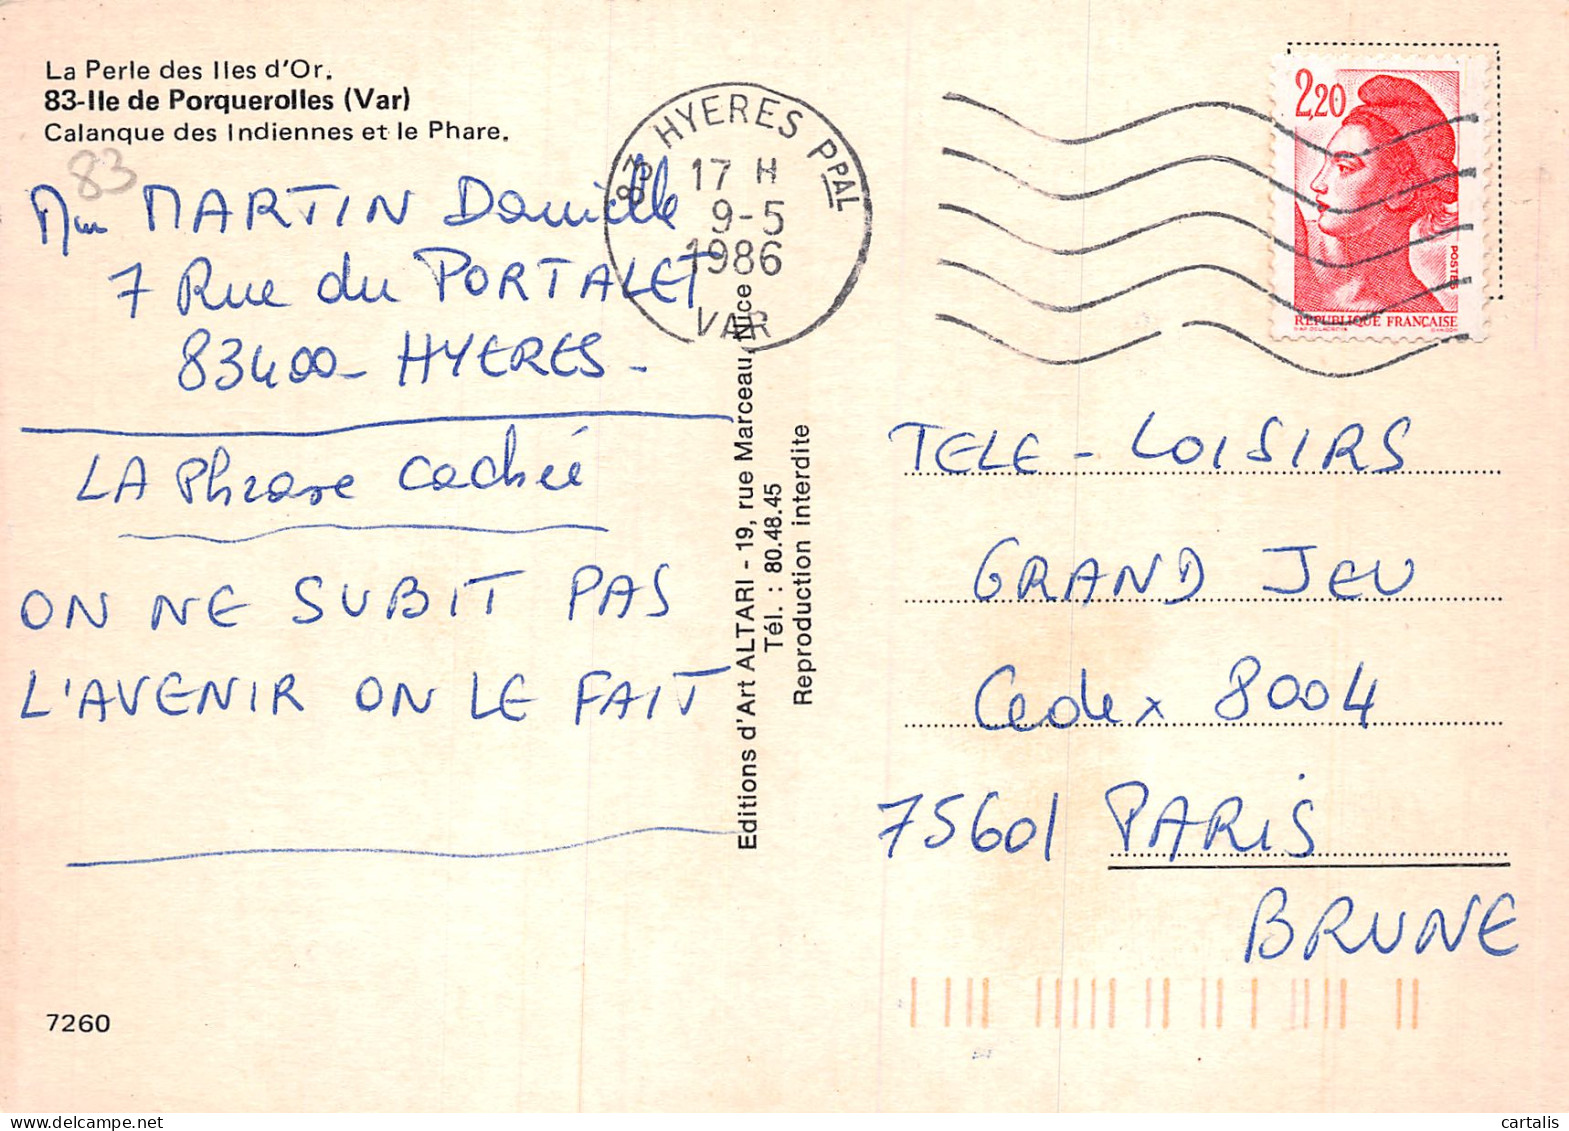 La Perle des Iles d'Or.
83-Ile de Porquerolles (Var)
Calanque des Indiennes et le Phare.
83
Mme MARTIN Danielle
7 Rue du PORTALET
83400 - HYERES -
LA Phrase cachée
ON NE SUBIT PAS
L'AVENIR ON LE FAIT
7260
83 HYERES PPAL
17 H
9-5
1986
VAR
Editions d'Art ALTARI - 19, rue Marceau, Nice
Tél. : 80.48.45
Reproduction interdite
2,20
POSTES
REPUBLIQUE FRANÇAISE
TELE - LOISIRS
GRAND JEU
Cedex 8004
75601 PARIS
BRUNE
cartalis